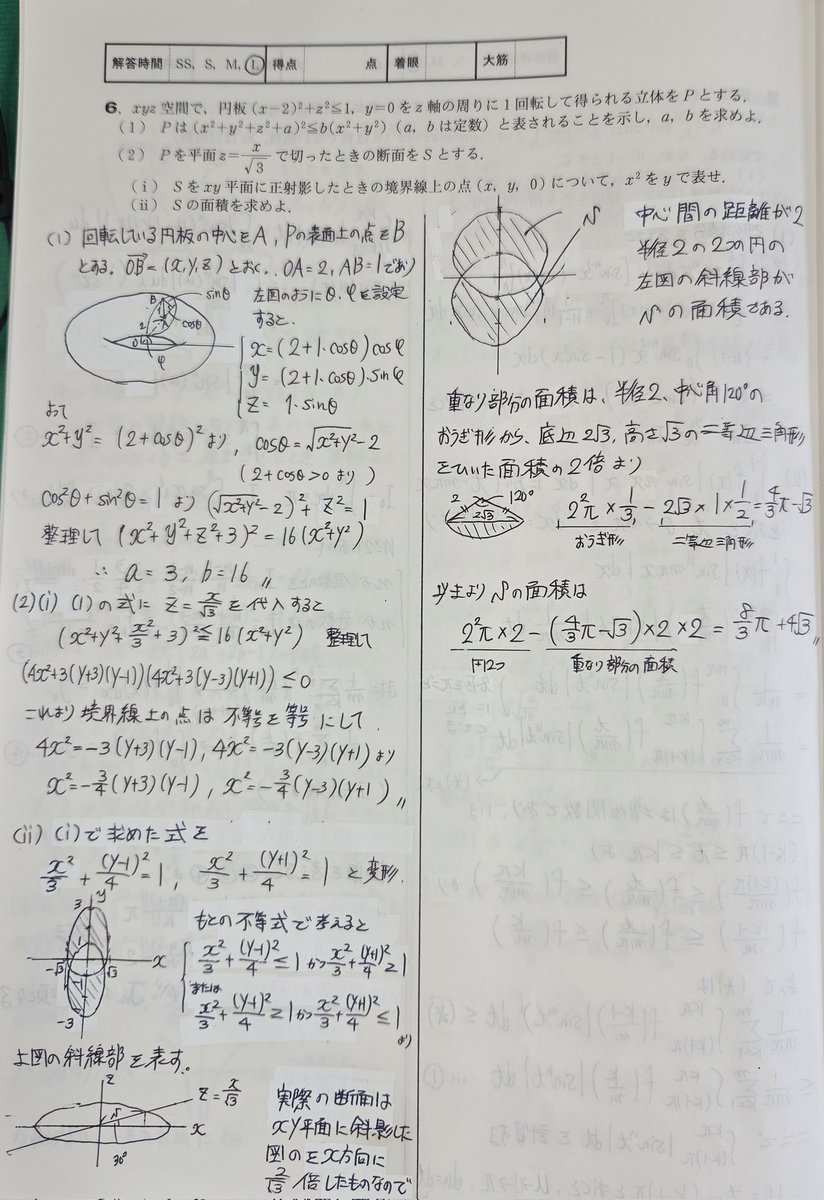 解答時間 SS, S, M, L 得点 点 着眼 大筋
6. xyz 空間で，円板 (x−2)²+z²≦1，y=0をz軸の周りに1回転して得られる立体をPとする．
(1) Pは(x²+y²+z²+a)²≦b(x²+y²)（a，bは定数）と表されることを示し，a，bを求めよ．
(2) Pを平面z=x/√3 で切ったときの断面をSとする．
(i) Sをxy平面に正射影したときの境界線上の点(x, y, 0)について，x²をyで表せ．
(ii) Sの面積を求めよ．
(1) 回転している円板の中心をA，Pの表面上の点をB
とする。OB=(x,y,z)とおく。OA=2, AB=1であり
左図のようにθ,φを設定
すると，
sinθ
cosθ
B
1
A
2
φ
x=(2+1·cosθ)cosφ
y=(2+1·cosθ)·sinφ
z=1·sinθ
よって
x²+y²=(2+cosθ)²より, cosθ=√x²+y²−2
(2+cosθ>0より)
cos²θ+sin²θ=1より(√x²+y²−2)²+z²=1
整理して(x²+y²+z²+3)²=16(x²+y²)
∴ a=3, b=16 〃
(2)(i) (1)の式にz=x/√3を代入すると
(x²+y²+x²/3+3)²≦16(x²+y²) 整理して
(4x²+3(y+3)(y−1))(4x²+3(y−3)(y+1))≦0
これより境界線上の点は不等号を等号にして
4x²=−3(y+3)(y−1), 4x²=−3(y−3)(y+1)より
x²=−3/4(y+3)(y−1), x²=−3/4(y−3)(y+1) 〃
(ii) (i)で求めた式を
x²/3+(y−1)²/4=1, x²/3+(y+1)²/4=1 と変形.
y
3
1
−√3
√3
x
−1
−3
もとの不等式で考えると
x²/3+(y−1)²/4≦1かつx²/3+(y+1)²/4≧1
または
x²/3+(y−1)²/4≧1かつx²/3+(y+1)²/4≦1
より
上図の斜線部を表す。
z
z=x/√3
S
x
30°
実際の断面は
xy平面に斜影した
図のをx方向に
2/√3倍したものなので
S
中心間の距離が2
半径2の2つの円の
左図の斜線部が
Sの面積である.
重なり部分の面積は、半径2、中心角120°の
おうぎ形から、底辺2√3, 高さ√3の二等辺三角形
をひいた面積の2倍より
2
120°
2√3
2²π×1/3−2√3×1×1/2=4/3π−√3
おうぎ形 二等辺三角形
以上よりSの面積は
2²π×2−(4/3π−√3)×2×2=8/3π+4√3 〃
円2つ 重なり部分の面積